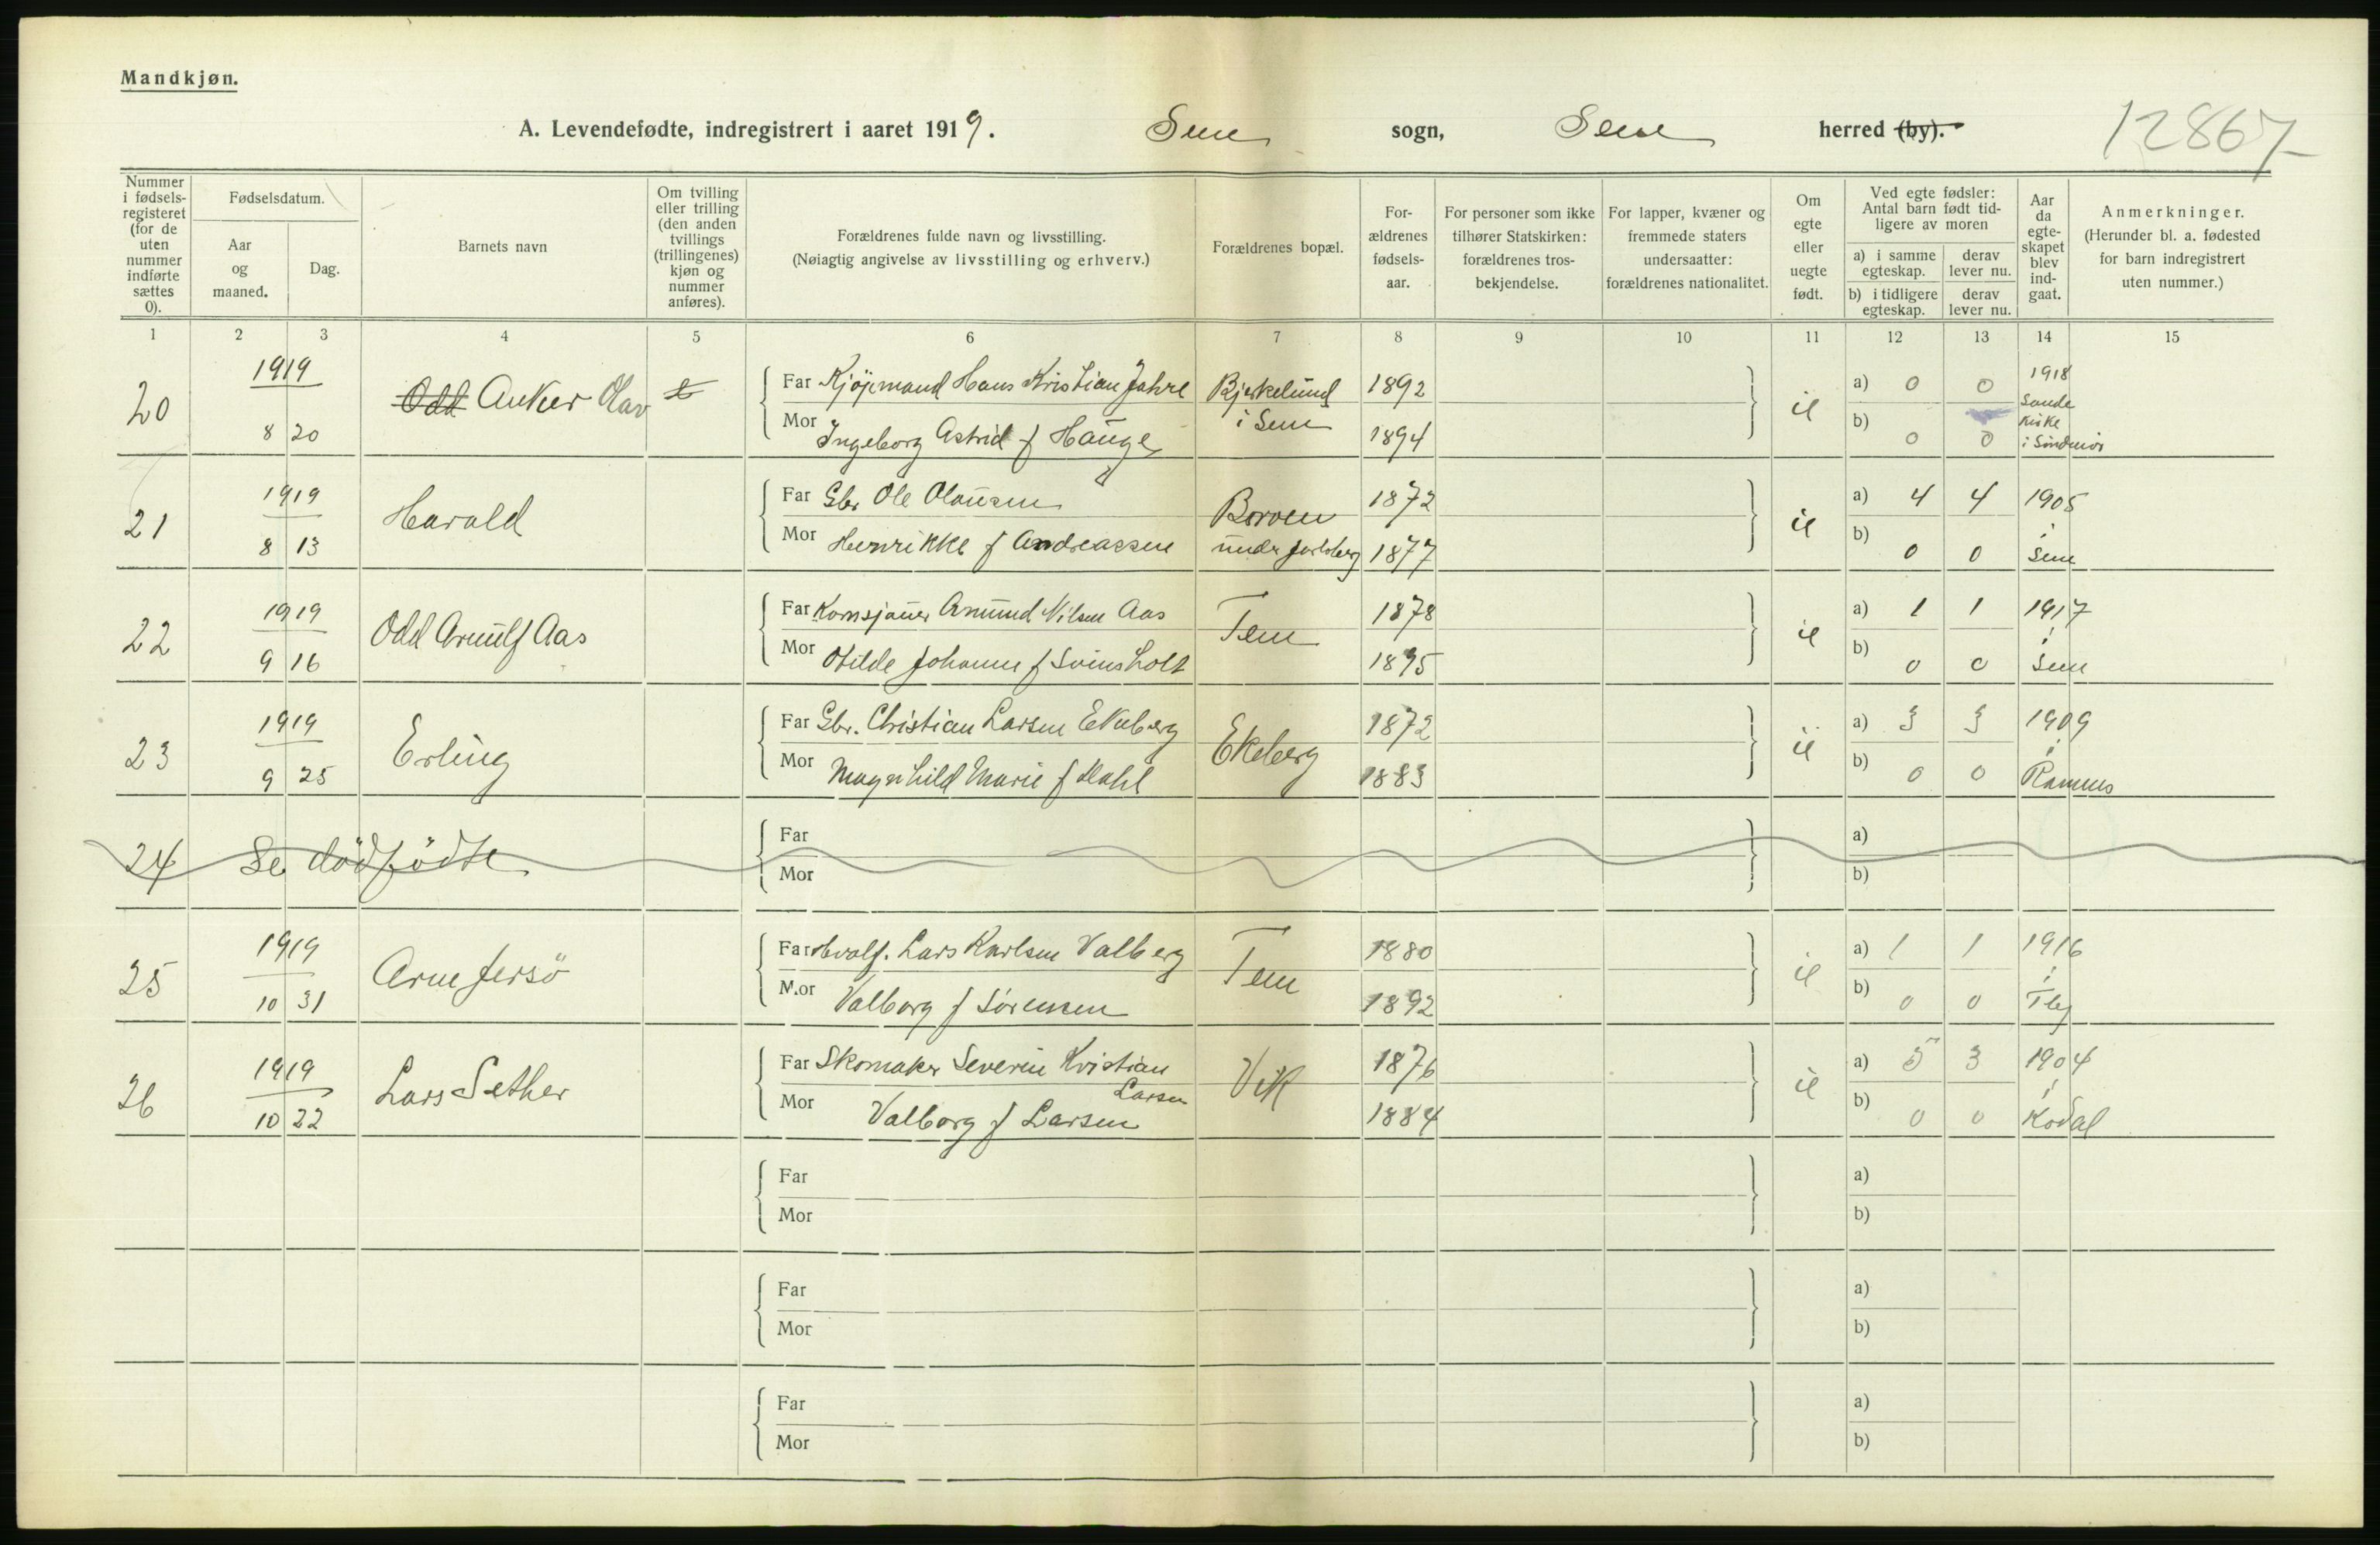 Mandkjøn.
A. Levendefødte, indregistrert i aaret 1919. Sem sogn, Sem herred (by).
12867
Nummer i fødsels-registeret (for de uten nummer indførte sættes 0).
Fødselsdatum.
Aar og maaned.
Dag.
Barnets navn
Om tvilling eller trilling (den anden tvillings (trillingenes) kjøn og nummer anføres).
Forældrenes fulde navn og livsstilling.
(Nøiagtig angivelse av livsstilling og erhverv.)
Forældrenes bopæl.
For-ældrenes fødsels-aar.
For personer som ikke tilhører Statskirken: forældrenes tros-bekjendelse.
For lapper, kvæner og fremmede staters undersaatter: forældrenes nationalitet.
Om egte eller uegte født.
Ved egte fødsler: Antal barn født tid-ligere av moren
a) i samme egteskap.
derav lever nu.
b) i tidligere egteskap.
derav lever nu.
Aar da egte-skapet blev ind-gaat.
Anmerkninger.
(Herunder bl. a. fødested for barn indregistrert uten nummer.)
1 2 3 4 5 6 7 8 9 10 11 12 13 14 15
20 1919 8 20 Odd Anker Olav
Far Kjøpmand Hans Kristian Jahre Bjerkelund i Sem 1892
Mor Ingeborg Astrid f Hauge 1894
a) 0 0 1918
b) 0 0 Sande Kirke i Søndmør
21 1919 8 13 Harald
Far Gbr Ole Olausen Borven under Jarlsberg 1872
Mor Henrikke f Andreassen 1877
a) 4 4 1905
b) 0 0 i Sem
22 1919 9 16 Odd Arnulf Aas
Far Amund Nilsen Aas Tem 1878
Mor Otilde Johanne f Svinsholt 1895
a) 1 1 1917
b) 0 0 i Sem
23 1919 9 25 Erling
Far Gbr. Christian Larsen Ekeberg Ekeberg 1872
Mor Magnhild Marie f Dahl 1883
a) 3 3 1909
b) 0 0 i Ramnes
24 Se dødfødte
Far
Mor
a)
b)
25 1919 10 31 Arne Jersö
Far Hvalf. Lars Karlsen Valberg Tem 1880
Mor Valborg f Sørensen 1892
a) 1 1 1916
b) 0 0 i Tbg
26 1919 10 22 Lars Sether
Far Skomaker Severin Kristian Larsen Vik 1876
Mor Valborg f Larsen 1884
a) 5 3 1904
b) 0 0 i Kodal
Far
Mor
a)
b)
Far
Mor
a)
b)
Far
Mor
a)
b)